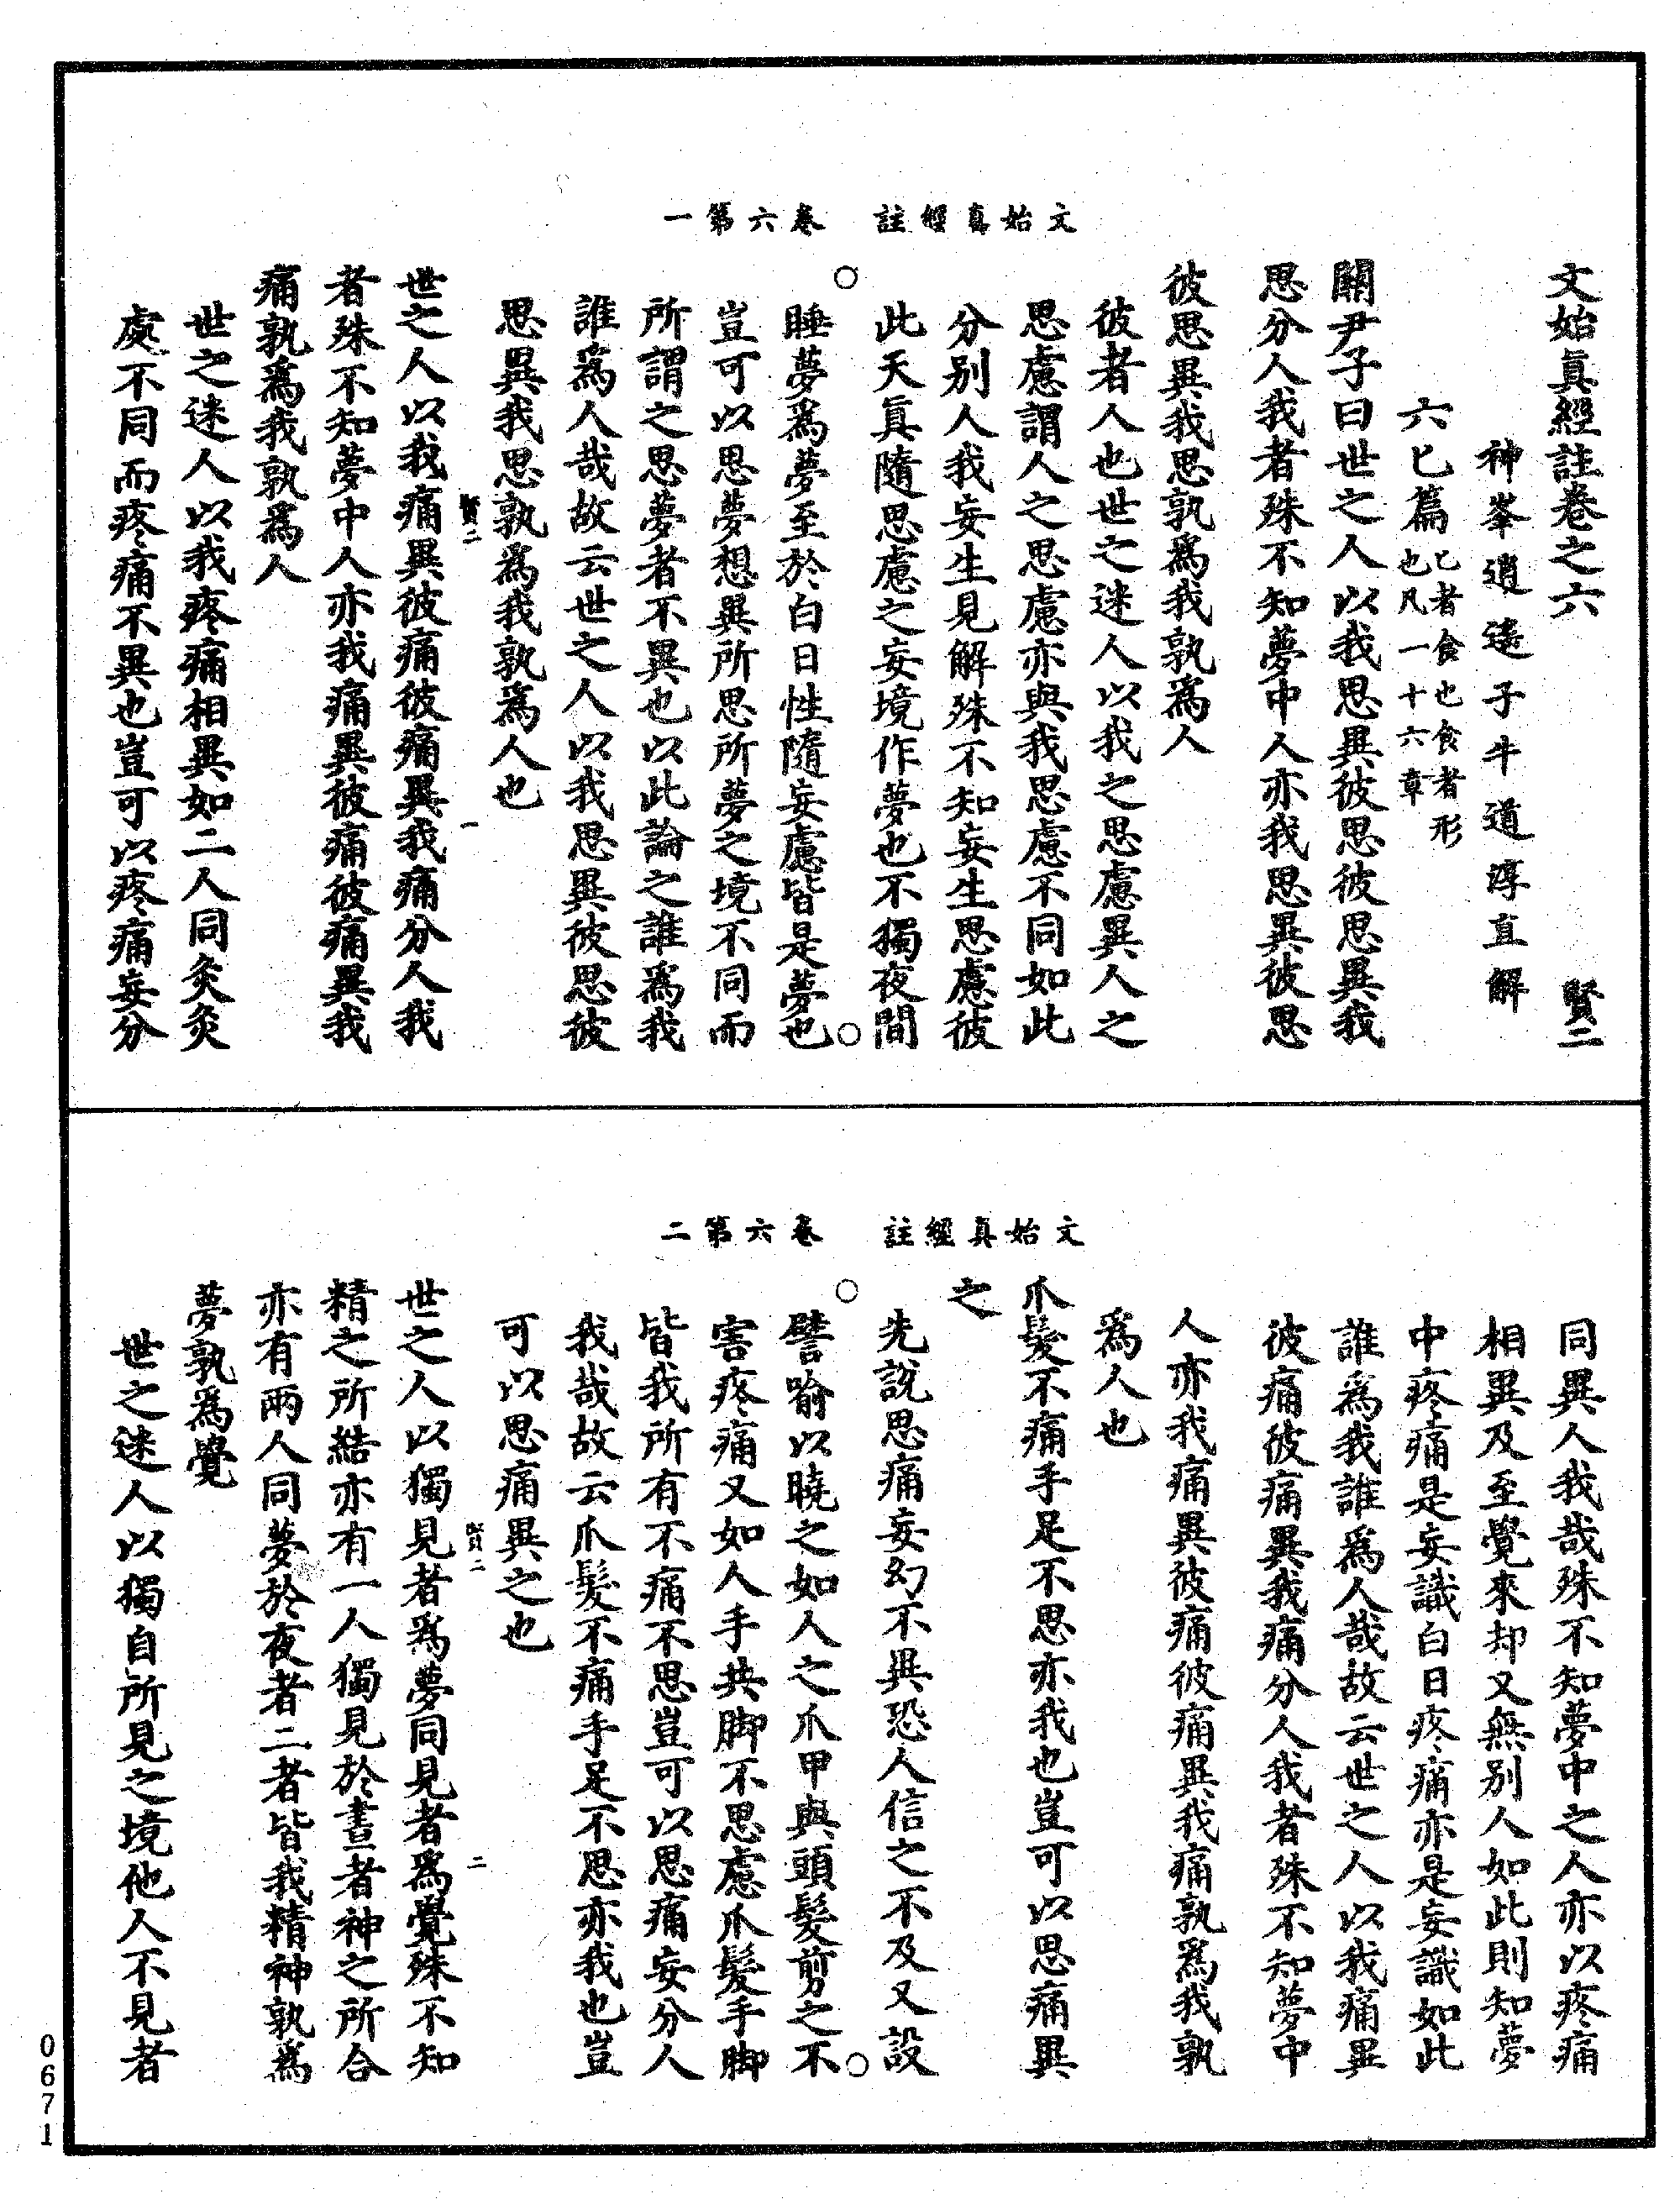 文始真經註　卷六第一
文始眞經註卷之六　賢二
神峯逍遙子牛道淳直解
六匕篇匕者食也食者形也凡一十六章
關尹子曰世之人以我思異彼思彼思異我
思分人我者殊不知夢中人亦我思異彼思
彼思異我思孰爲我孰爲人
彼者人也世之迷人以我之思慮異人之
思慮謂人之思慮亦與我思慮不同如此
分別人我妄生見解殊不知妄生思慮彼
此天眞隨思慮之妄境作夢也不獨夜間
○睡夢爲夢至於白日性隨妄慮皆是夢也○
豈可以思夢想異所思所夢之境不同而
所謂之思夢者不異也以此論之誰爲我
誰爲人哉故云世之人以我思異彼思彼
思異我思孰爲我孰爲人也
賢二　一
世之人以我痛異彼痛彼痛異我痛分人我
者殊不知夢中人亦我痛異彼痛彼痛異我
痛孰爲我孰爲人
世之迷人以我疼痛相異如二人同灸灸
處不同而疼痛不異也豈可以疼痛妄分
文始真經註　卷六第二
同異人我哉殊不知夢中之人亦以疼痛
相異及至覺來却又無別人如此則知夢
中疼痛是妄識白日疼痛亦是妄識如此
誰爲我誰爲人哉故云世之人以我痛異
彼痛彼痛異我痛分人我者殊不知夢中
人亦我痛異彼痛彼痛異我痛孰爲我孰
爲人也
爪髮不痛手足不思亦我也豈可以思痛異
之
先說思痛妄幻不異恐人信之不及又設
○譬喻以曉之如人之爪甲與頭髮剪之不○
害疼痛又如人手共脚不思慮爪髮手脚
皆我所有不痛不思豈可以思痛妄分人
我哉故云爪髮不痛手足不思亦我也豈
可以思痛異之也
賢二　二
世之人以獨見者爲夢同見者爲覺殊不知
精之所結亦有一人獨見於晝者神之所合
亦有兩人同夢於夜者二者皆我精神孰爲
夢孰爲覺
世之迷人以獨自所見之境他人不見者
0671